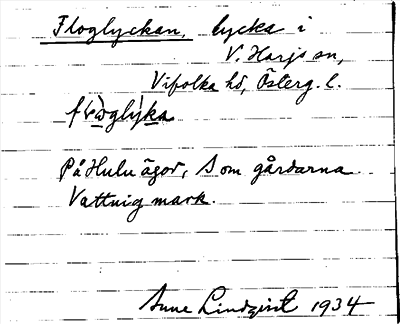 Floglyckan, lycka i
V. Harjs sn,
Vifolka hd, Österg. l.
På Hulu ägor, S om gårdarna
Vattnig mark.
Sune Lindqvist 1934